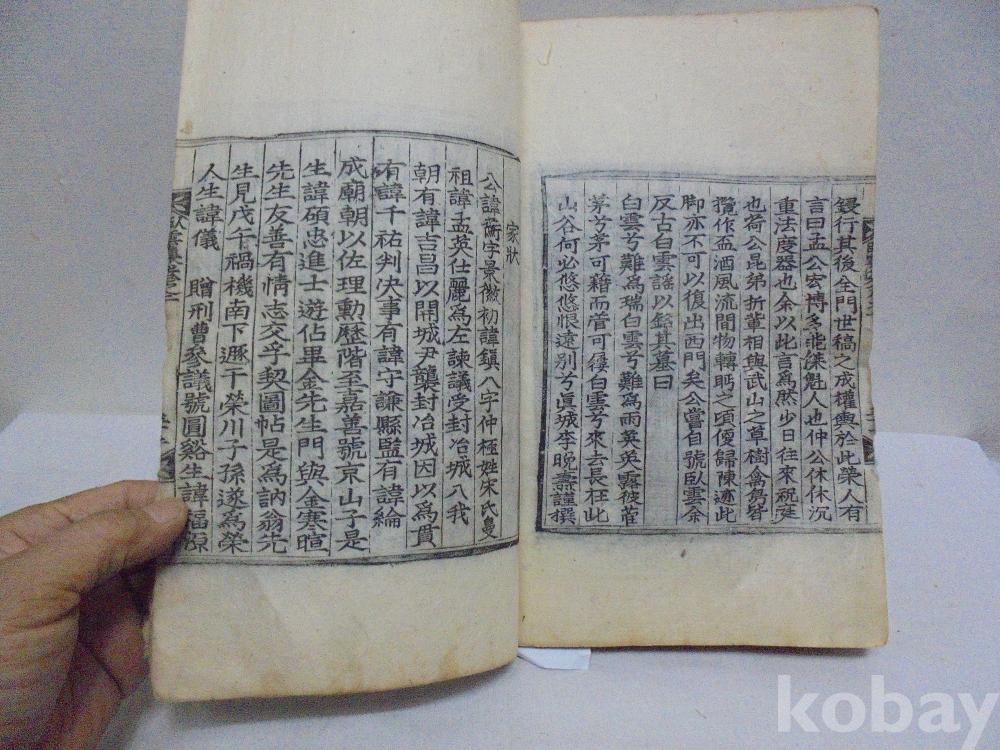 鋟行其後全門世稿之成權輿於此榮人有
言曰孟公宏博多能傑魁人也仲公休休沉
重法度器也余以此言爲然少日往來祝
也荷公昆弟折輩相與武山之草樹禽魚皆
攬作盃酒風流間物轉眄之頃便歸陳迹此
脚亦不可以復出西門矣公嘗自號臥雲余
反古白雲謠以銘其墓曰
白雲兮難爲瑞白雲兮難爲雨英英露彼菅
茅兮茅可藉而菅可屨白雲兮來去長在此
山谷何必悠悠恨遠別兮眞城李晚燾謹撰
家狀
公諱字景徽初諱鎮八字仲極姓宋氏曼
祖諱孟英仕麗爲左諫議受封冶城入我
朝有諱吉昌以開城尹襲封冶城因以爲貫
有諱千祐判决事有諱守謙縣監有諱綸
成廟朝以佐理勳歷階至嘉善號京山子是
生諱碩忠進士遊佔畢金先生門與金寒暄
先生友善有情志交孚契圖帖是爲訥翁先
生見戊午禍機南下遯于榮川子孫遂爲榮
人生諱儀 贈刑曹參議號圓谿生諱福源
kobay